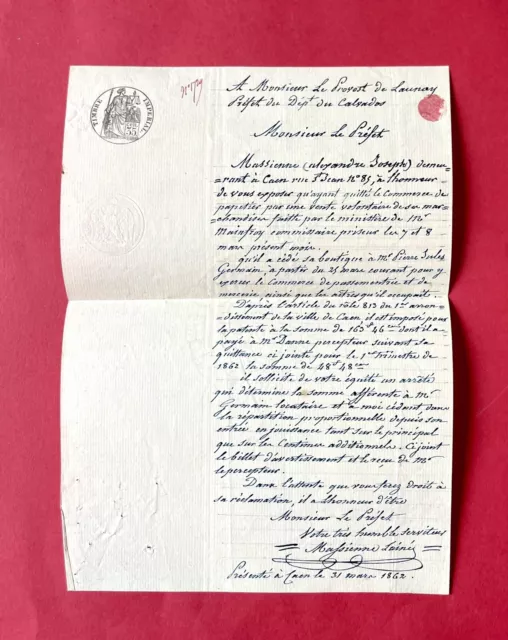 TIMBRE IMPERIAL
A Monsieur Le Provost de Launay
Préfet du Dépt. du Calvados
Monsieur Le Préfet
Massienne (alexandre Joseph) demeu-
rant à Caen rue St Jean No 85, à l'honneur
de vous exposer qu'ayant quitté le Commerce de
papetier par une vente volontaire de ses mar-
chandises faite par le ministère de Mr
Mainfroy commissaire priseur les 7 et 8
mars présent mois.
qu'il a cédé sa boutique à Mr Pierre Jules
Germain, à partir du 25 mars courant pour y
exercer le Commerce de passementerie et de
mercerie ainsi que les aîtres qu'il occupait.
D'après l'article du rôle 813 du 1er arron-
dissement de la ville de Caen il est imposé pour
la patente à la somme de 163f 46cmes dont il a
payé à Mr Danne percepteur suivant sa
quittance ci jointe pour le 1er trimestre de
1862 la somme de 48f 48cmes
il sollicite de votre équité un arrêté
qui détermine la somme afférente à Mr
Germain locataire et à moi cédant dans
la répartition proportionnelle depuis son
entrée en jouissance tant sur le principal
que sur les Centimes additionnels. Ci joint
le billet d'avertissement et le reçu de Mr
le percepteur.
Dans l'attente que vous ferez droit à
sa réclamation, il a l'honneur d'être
Monsieur Le Préfet
Votre très humble serviteur
Massienne l'ainé
Présenté à Caen le 31 mars 1862.